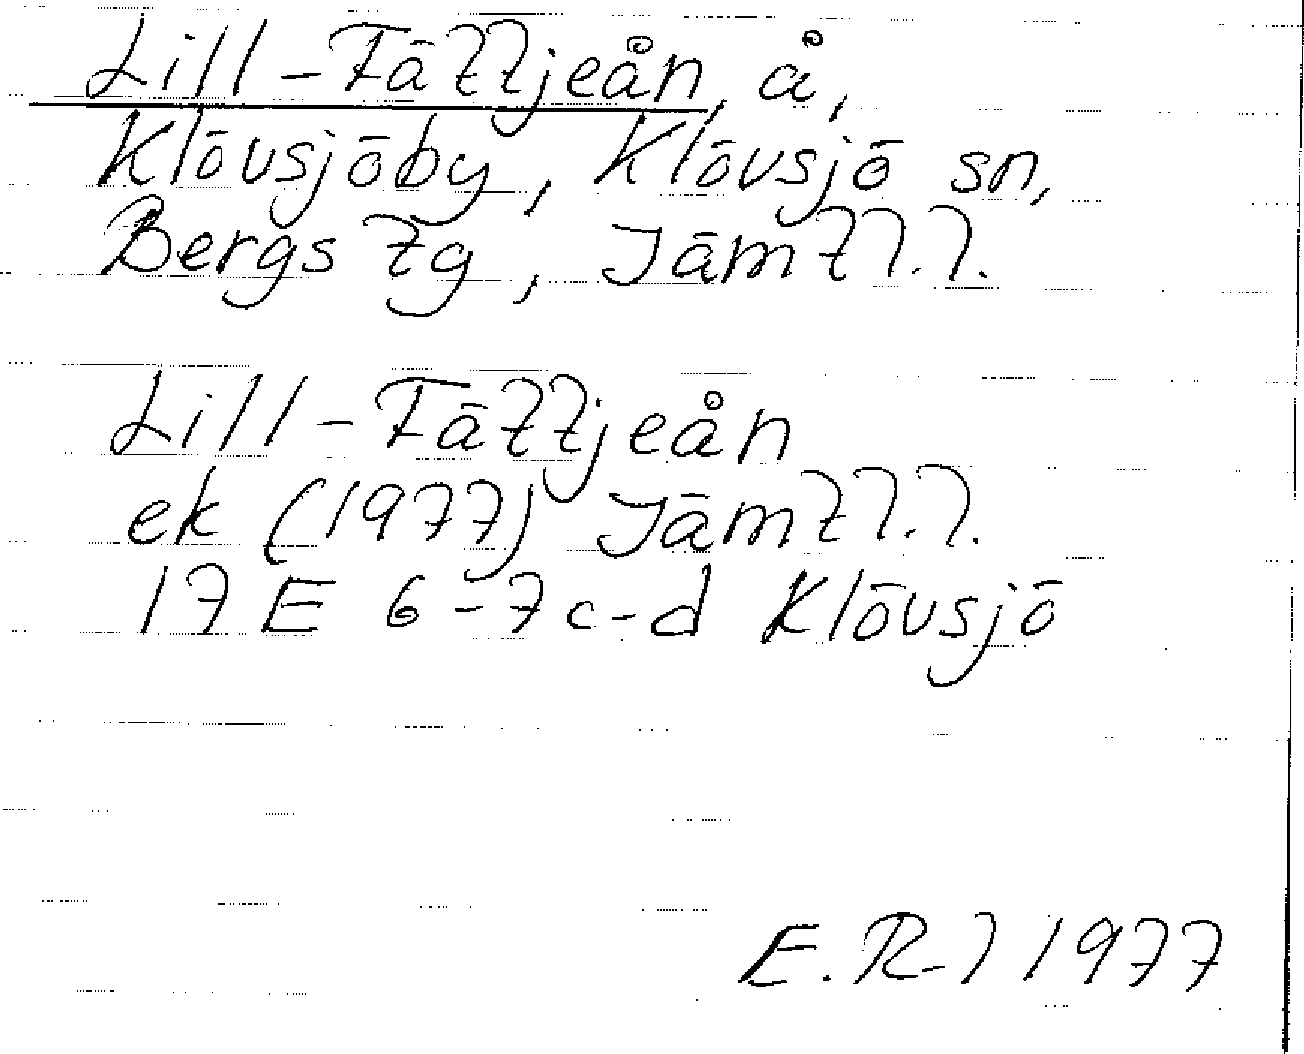 Lill-Fättjeån, å,
Klövsjöby, Klövsjö sn,
Bergs tg, Jämtl.l.
Lill-Fättjeån
ek (1977) Jämtl.l.
17 E 6-7 c-d Klövsjö
E. R-l 1977